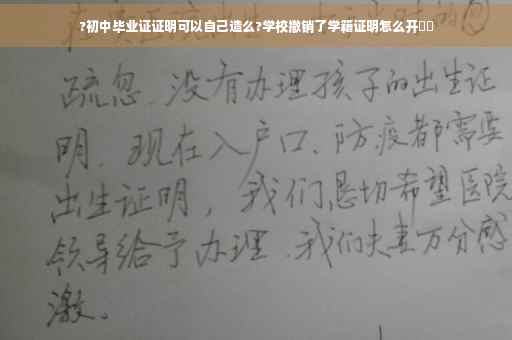 ?初中毕业证证明可以自己造么?学校撤销了学籍证明怎么开
疏忽、没有办理孩子的出生证
明。现在入户口、防疫都需要
出生证明，我们恳切希望医院
领导给予办理、我们夫妻万分感
激。